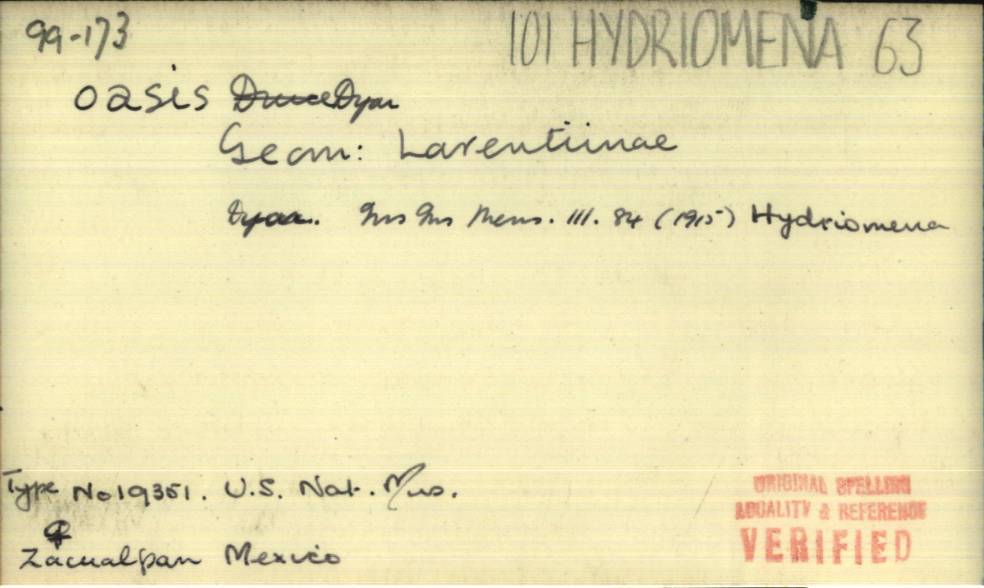 99-173
101 HYDRIOMENA 63
oasis Druce Dyar
Geom: Larentiinae
Dyar. Ins Ins Mens. III. 84 (1915) Hydriomena
Type No 19351. U.S. Nat. Mus.
♀
Zacualpan Mexico
ORIGINAL SPELLING
LOCALITY & REFERENCE
VERIFIED